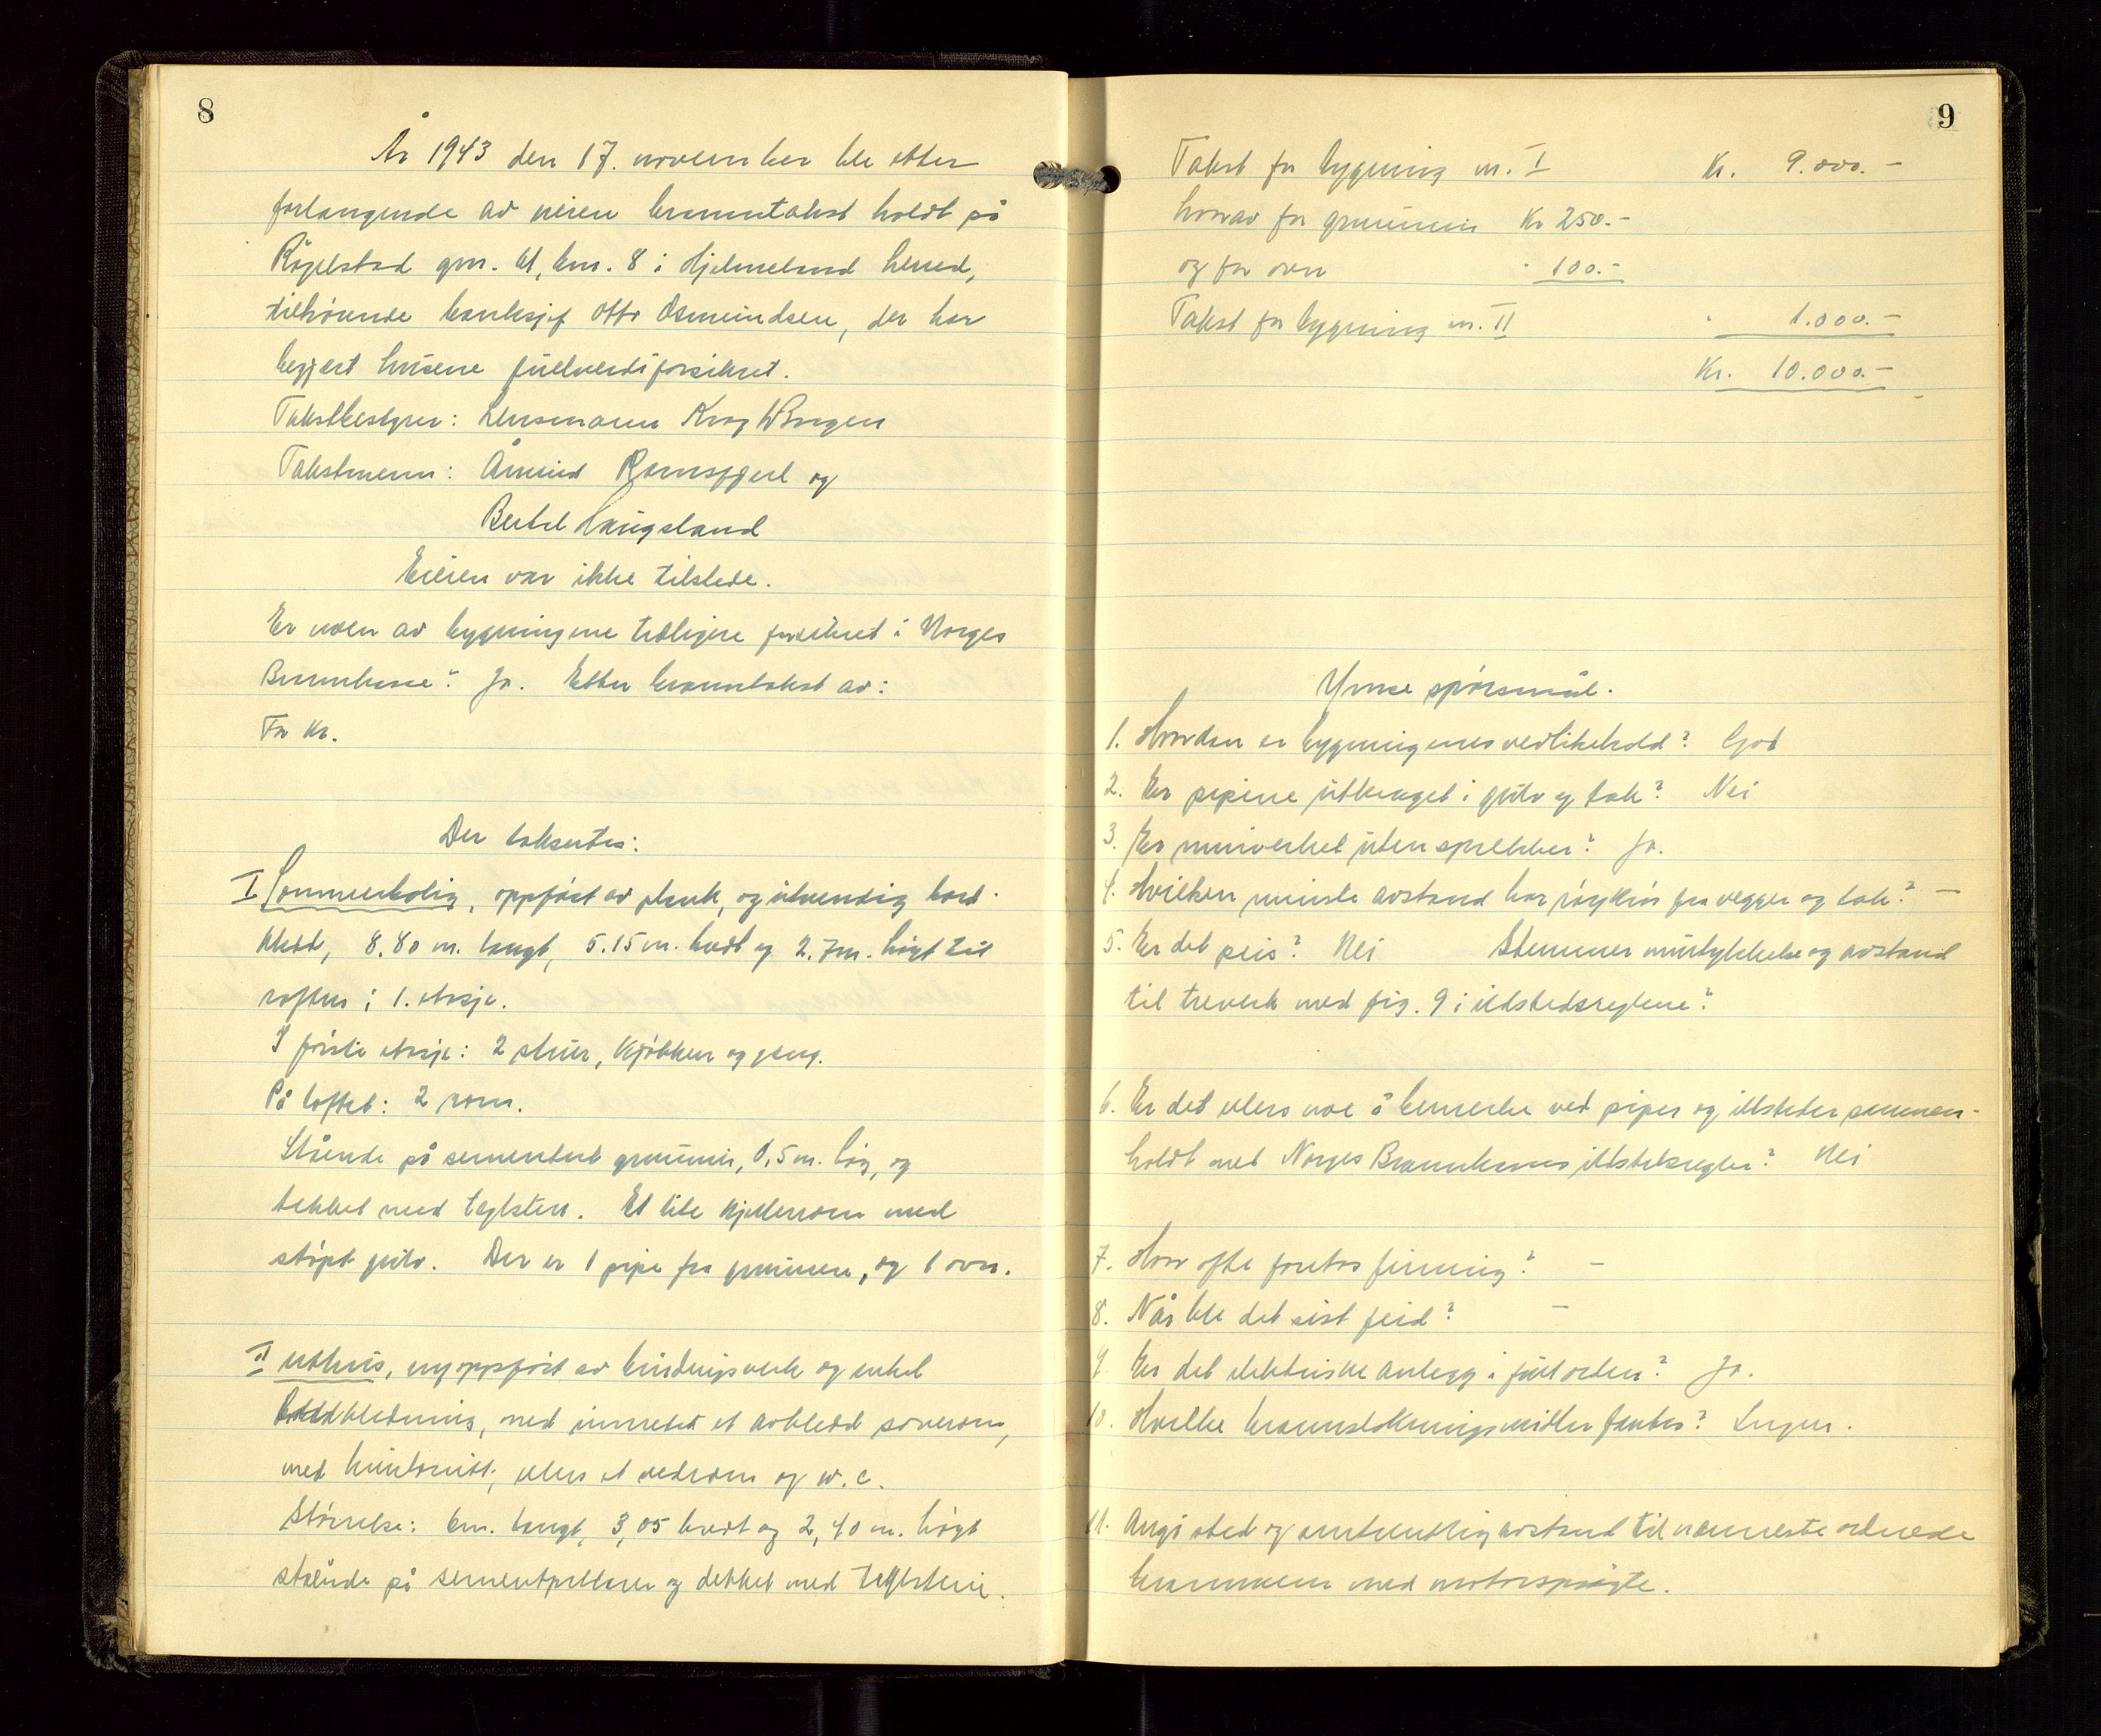 8
År 1943 den 17. november ble etter
forlangende av eieren branntakst holdt på
Rågelstad gnr. 61, bnr. 8 i Hjelmeland herred,
tilhørende banksjef Otto Osmundsen, der har
begjært husene fullverdiforsikret.
Takstbestyrer: Lensmann Krog
Takstmenn: Åmund Ramsfjell og
Bertel Haugsland
Eieren var ikke tilstede.
Er noen av bygningene tidligere forsikret i Norges
Brannkasse? Ja. Etter branntakst av:
For kr.
Der takseredes:
I Sommerbolig, oppført av plank, og utvendig bord-
kledd, 8.80 m. langt, 5.15 m. bredt og 2.7 m. høgt til
raften i 1. etasje.
I første etasje: 2 stuer, kjøkken og gang.
På loftet: 2 rom.
Stående på sementert grunnmur, 0,5 m. høg, og
tekket med teglsten. Et lite kjellerrom med
støpt gulv. Der er 1 pipe fra grunnen, og 1 ovn.
II Uthus, nyoppført av bindingsverk og enkel
bordkledning, med innredet et avkledd soverom,
med huntonitt, ellers et vedrom og w.c.
Størrelse: 6 m. langt, 3,05 bredt og 2,40 m. høgt
stående på sementpillarer og dekket med teglstein.
9
Takst for bygning nr. I Kr. 9.000.-
hvorav for grunnmur Kr 250.-
og for ovn " 100.-
Takst for bygning nr. II " 1.000.-
Kr. 10.000.-
Ymse spørsmål.
1. Hvordan er bygningenes vedlikehold? God
2. Er pipene utkraget i gulv og tak? Nei
3. Er murverket uten sprekker? Ja.
4. Hvilken minste avstand har røykrør fra vegger og tak? -
5. Er det peis? Nei Stemmer murtykkelse og avstand
til treverk med fig. 9 i ildstedsreglene?
6. Er det ellers noe å bemerke ved piper og ildsteder sammen-
holdt med Norges Brannkasses ildstedsregler? Nei
7. Hvor ofte foretas feiing? -
8. Når ble det sist feid? -
9. Er det elektriske anlegg i full orden? Ja.
10. Hvilke brannslokningsmidler fantes? Ingen.
11. Angi sted og omtrentlig avstand til nærmeste ordnede
brannvern med motorsprøyte.